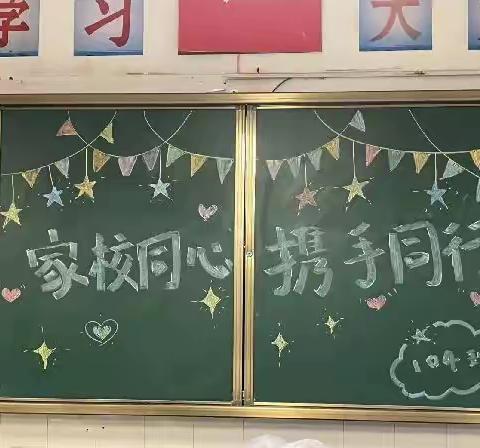 学习 天
家校同心 携手同行
104班